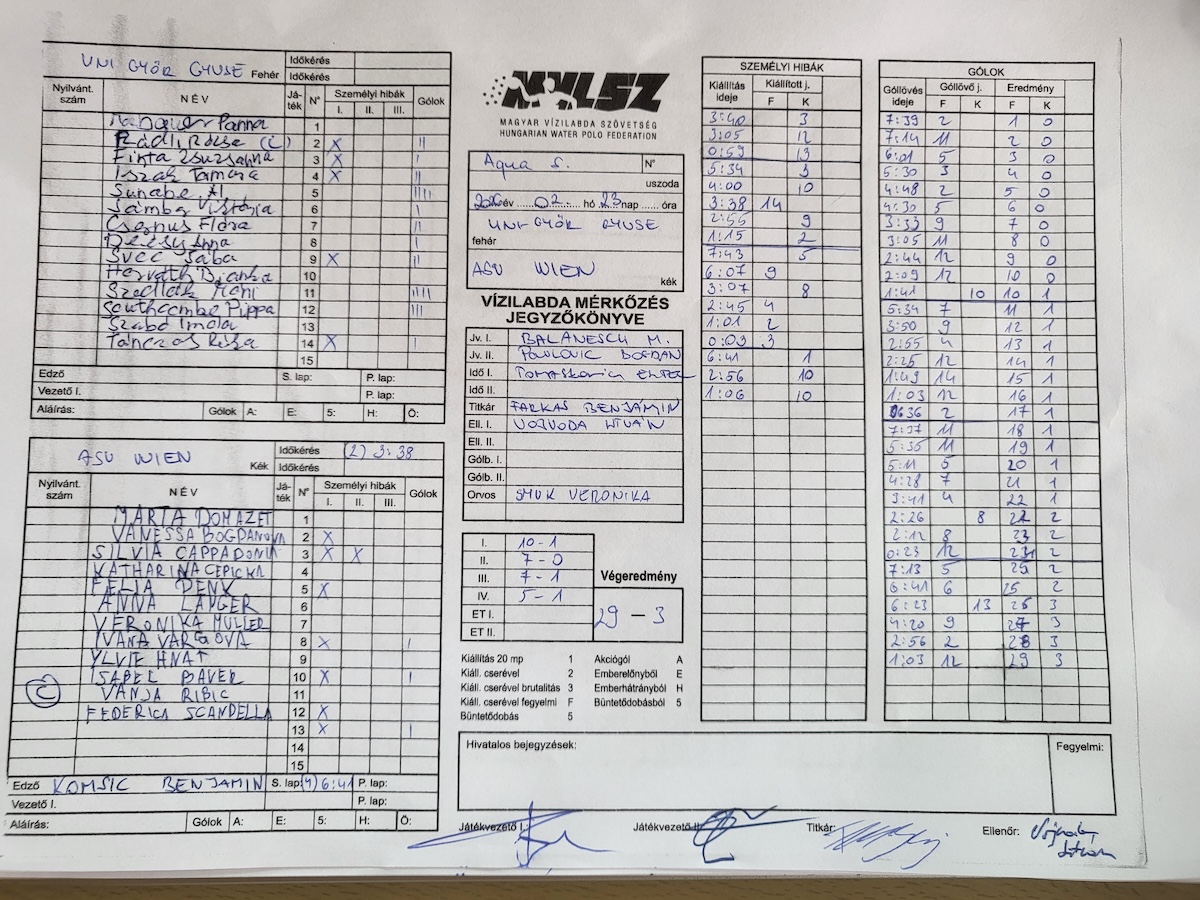 UNI GYŐR GYUSE Fehér
Időkérés
Időkérés
Nyilvánt. szám NÉV Játék N° Személyi hibák Gólok
I. II. III.
Panna 1
Rádli Rózsa (C) 2 X II
Finta Zsuzsanna 3 X I
Iszak Tamara 4 X II
Sunabe AI 5 IIII
Sámba Viktória 6 I
Csepus Flóra 7 II
Dézsy Anna 8 I
Svec Sába 9 X II
Horváth Bianka 10
Szedlák Heni 11 IIII
Southcombe Pippa 12 III
Szabó Imola 13
Táncos Rósa 14 X I
15
Edző S. lap: P. lap:
Vezető I. P. lap:
Aláírás: Gólok A: E: 5: H: Ö:
ASV WIEN Kék
Időkérés (2) 3:38
Időkérés
Nyilvánt. szám NÉV Játék N° Személyi hibák Gólok
I. II. III.
MARTA DOMAZET 1
VANESSA BOGDANOVA 2 X
SILVIA CAPPADONIA 3 X X
KATHARINA CEPICKA 4
FELIA DENK 5 X
ANNA LANGER 6
VERONIKA MÜLLER 7
IVANA VARGOVA 8 X I
YLVIE HNAT 9
ISABEL BAVER 10 X I
C VANJA RIBIC 11
FEDERICA SCANDELLA 12 X
13 X I
14
15
Edző KOMSIC BENJAMIN S. lap: (4) 6:41 P. lap:
Vezető I. P. lap:
Aláírás: Gólok A: E: 5: H: Ö:
MVLSZ
MAGYAR VÍZILABDA SZÖVETSÉG
HUNGARIAN WATER POLO FEDERATION
Aqua S. N°
uszoda
év 02. hó 23 nap ...... óra
UNI GYŐR GYUSE
fehér
ASV WIEN
kék
VÍZILABDA MÉRKŐZÉS
JEGYZŐKÖNYVE
Jv. I. BALANESCU M.
Jv. II. POVLOVIC BOGDAN
Idő I.
Idő II.
Titkár FARKAS BENJÁMIN
Ell. I. VOJVODA ISTVÁN
Ell. II.
Gólb. I.
Gólb. II.
Orvos SMUK VERONIKA
I. 10-1
II. 7-0
III. 7-1
IV. 5-1
ET I.
ET II.
Végeredmény
29 - 3
Kiállítás 20 mp 1 Akciógól A
Kiáll. cserével 2 Emberelőnyből E
Kiáll. cserével brutalitás 3 Emberhátrányból H
Kiáll. cserével fegyelmi F Büntetődobásból 5
Büntetődobás 5
SZEMÉLYI HIBÁK
Kiállítás ideje Kiállított j.
F K
3:40 3
3:05 12
0:59 13
5:34 3
4:00 10
3:38 14
2:55 9
1:15 2
7:43 5
6:07 9
3:07 8
2:45 4
1:01 2
0:03 3
6:41 1
2:56 10
1:06 10
GÓLOK
Góllövés ideje Góllövő j. Eredmény
F K F K
7:39 2 1 0
7:14 11 2 0
6:01 5 3 0
5:30 3 4 0
4:48 2 5 0
4:30 5 6 0
3:33 9 7 0
3:05 11 8 0
2:44 12 9 0
2:09 12 10 0
1:41 10 10 1
5:34 7 11 1
3:50 9 12 1
2:55 4 13 1
2:25 12 14 1
1:49 14 15 1
1:03 12 16 1
36 2 17 1
7:37 11 18 1
5:35 11 19 1
5:11 5 20 1
4:28 7 21 1
3:41 4 22 1
2:26 8 22 2
2:12 8 23 2
0:23 12 2
7:13 5 25 2
6:41 6 25 2
6:23 13 26 3
4:20 9 27 3
2:56 2 28 3
1:03 12 29 3
Hivatalos bejegyzések: Fegyelmi:
Játékvezető I.: Játékvezető II.: Titkár: Ellenőr: Vojvoda István